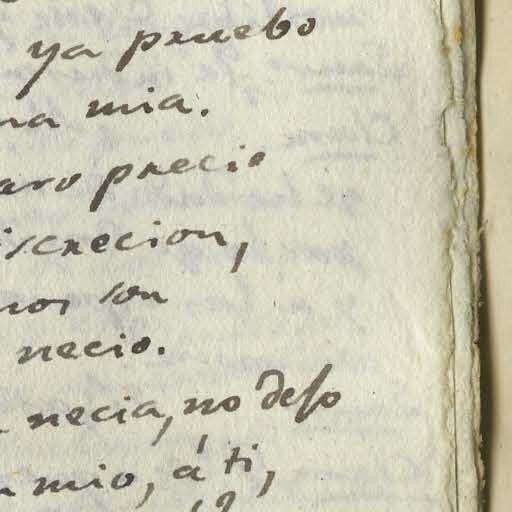 ya pruebo
na mia.
aro precio
iscrecion,
nos son
necio.
necia, no deso
mio, á ti,